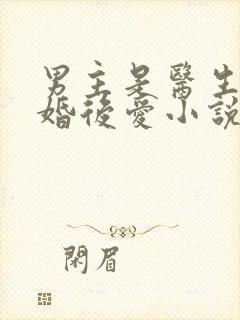 男主是醫生
婚後愛小說
閑眉